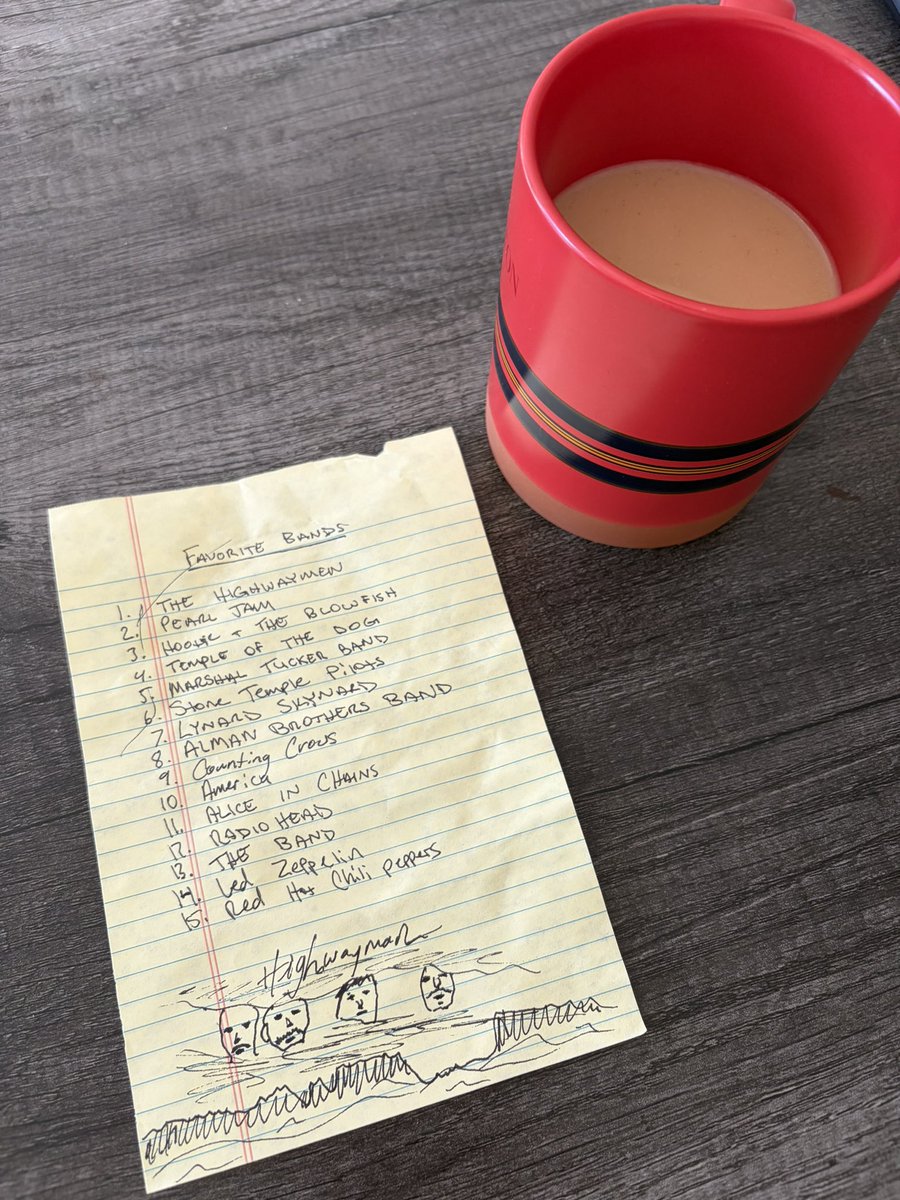 ON
FAVORITE BANDS
1. THE HIGHWAYMEN
2. PEARL JAM
3. HOOTIE + THE BLOWFISH
4. TEMPLE OF THE DOG
5. MARSHAL TUCKER BAND
6. Stone Temple Pilots
7. LYNARD SKYNARD
8. ALMAN BROTHERS BAND
9. Counting Crows
10. America
11. ALICE IN CHAINS
12. RADIOHEAD
13. THE BAND
14. Led Zeppelin
15. Red Hot Chili peppers
Highwayman